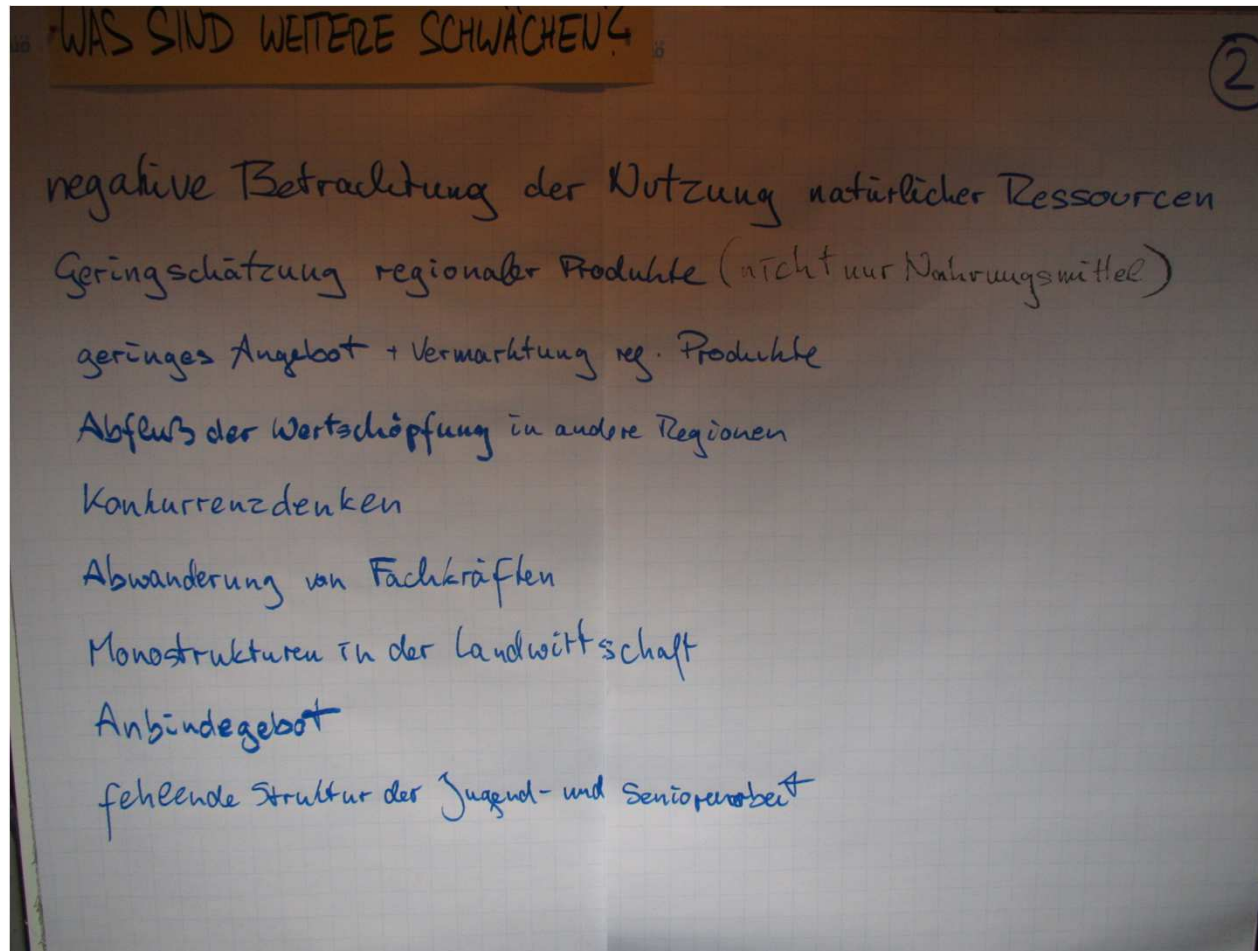 WAS SIND WEITERE SCHWÄCHEN?
2
negative Betrachtung der Nutzung natürlicher Ressourcen
Geringschätzung regionaler Produkte (nicht nur Nahrungsmittel)
geringes Angebot + Vermarktung reg. Produkte
Abfluß der Wertschöpfung in andere Regionen
Konkurrenzdenken
Abwanderung von Fachkräften
Monostrukturen in der Landwirtschaft
Anbindegebot
fehlende Struktur der Jugend- und Seniorenarbeit